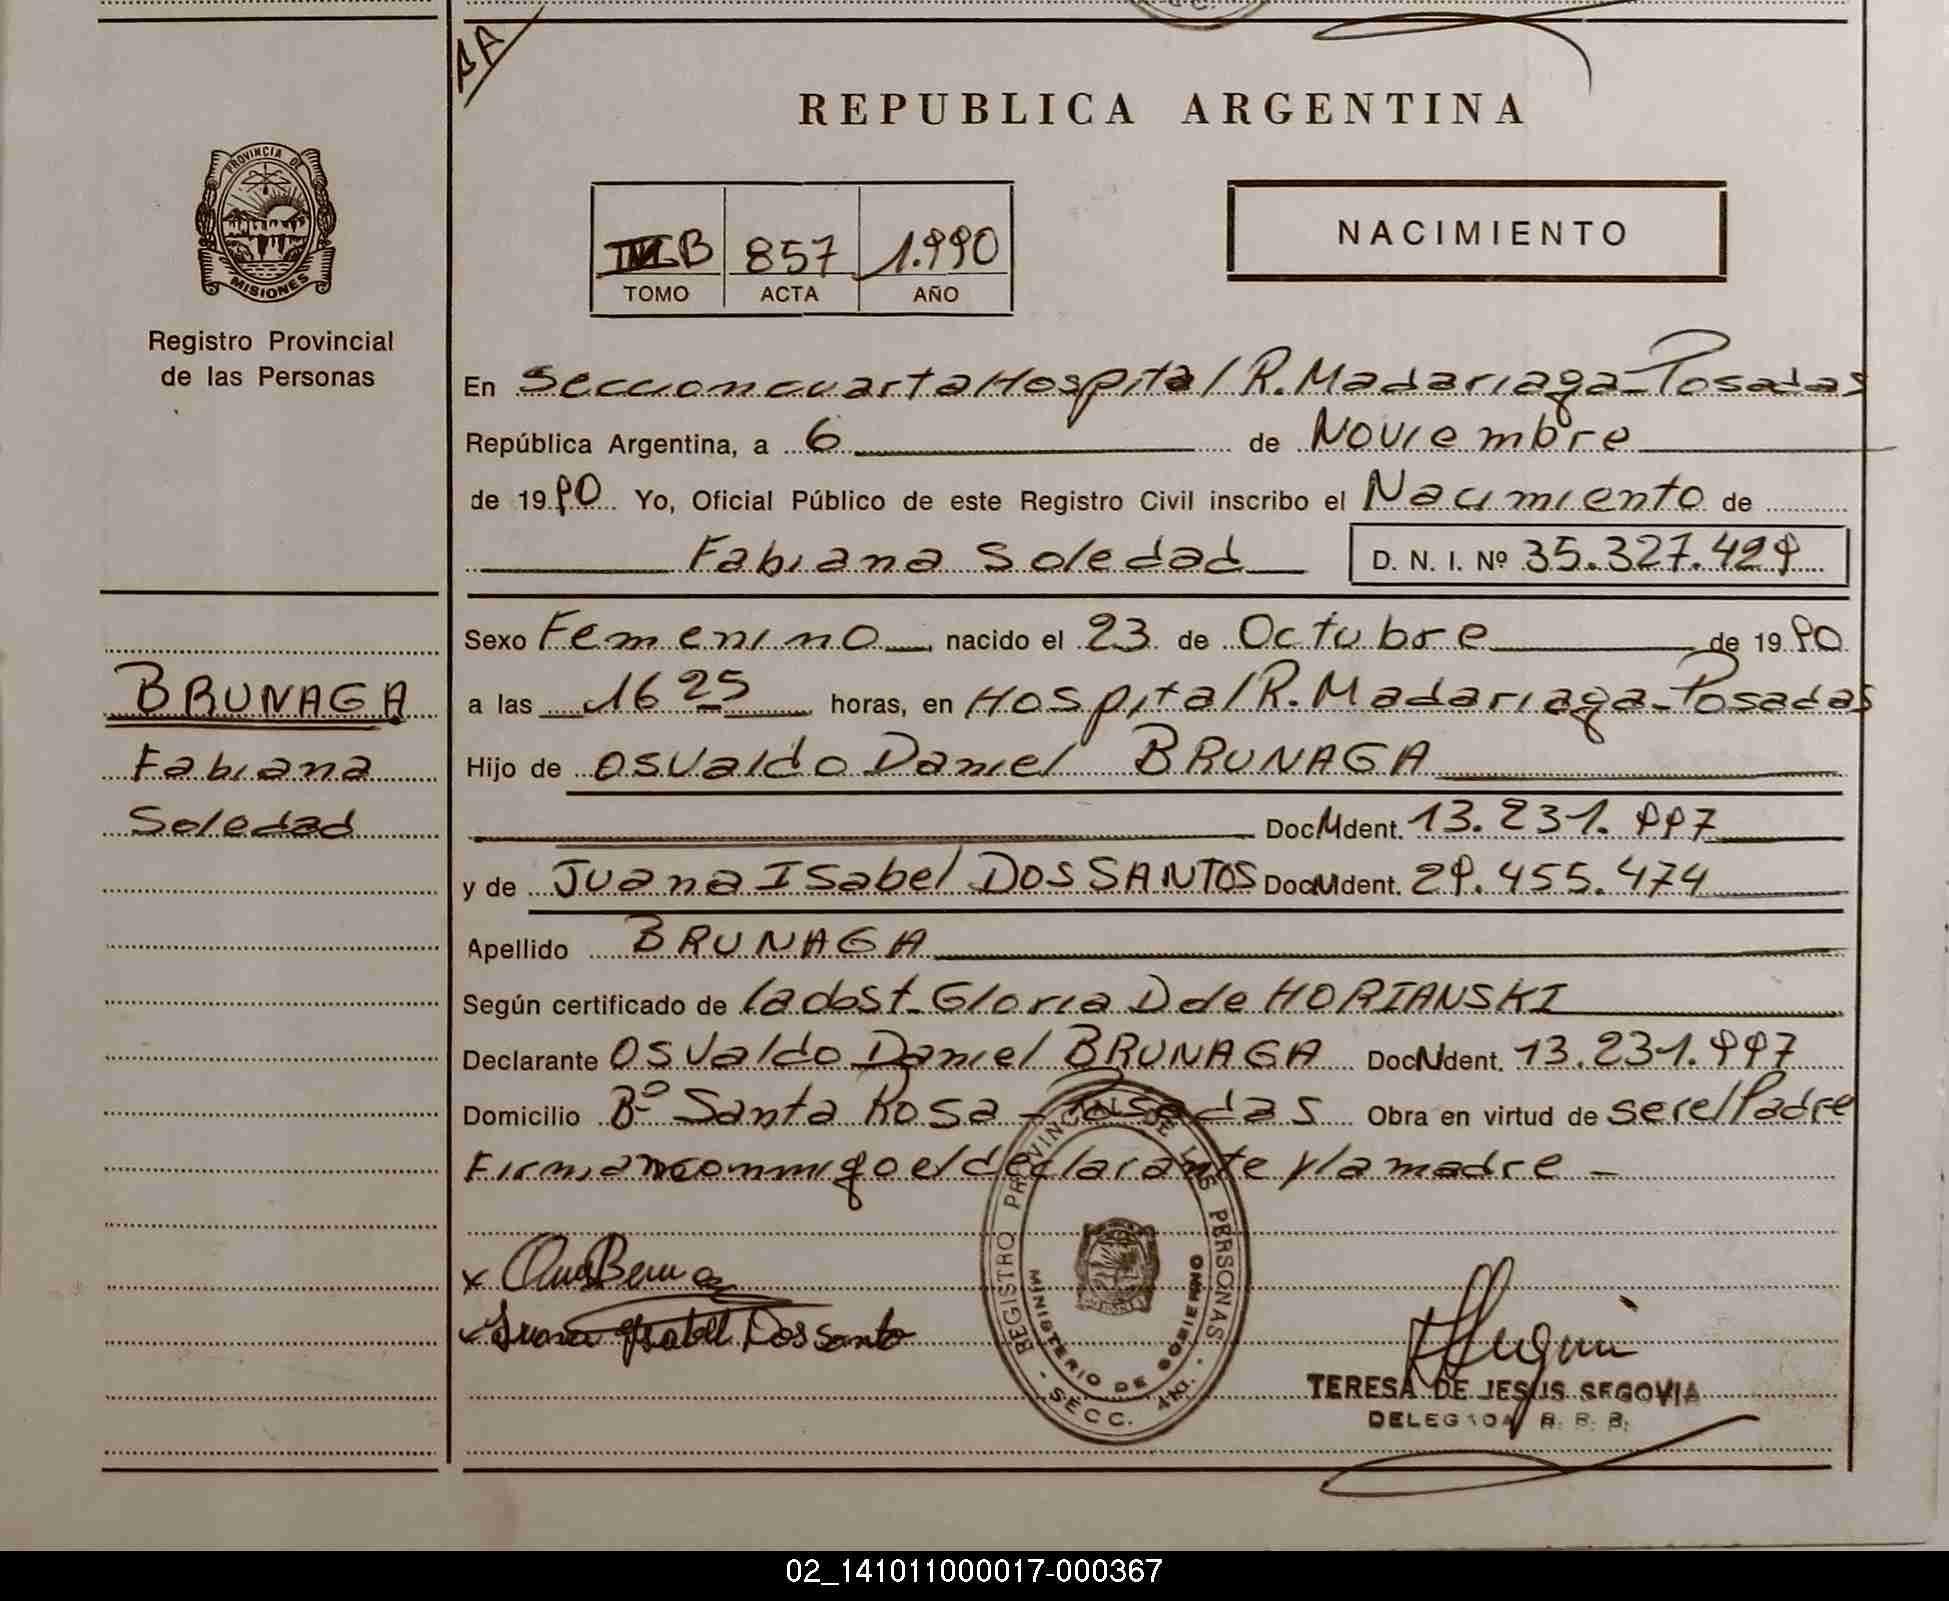 REPUBLICA ARGENTINA
PROVINCIA DE
MISIONES
Registro Provincial
de las Personas
B 857 1.990
TOMO ACTA AÑO
NACIMIENTO
En Seccion cuarta Hospital R. Madariaga - Posadas
República Argentina, a 6 de Noviembre
de 1990 Yo, Oficial Público de este Registro Civil inscribo el Nacimiento de
Fabiana Soledad D. N. I. Nº 35.327.429
Sexo Femenino nacido el 23 de Octubre de 1990
a las 16 25 horas, en Hospital R. Madariaga - Posadas
Hijo de Osvaldo Daniel BRUNAGA
Doc. Ident. 13.231.997
y de Juana Isabel DOS SANTOS Doc. Ident. 29.455.474
Apellido BRUNAGA
Según certificado de la obst. Gloria D de HORIANSKI
Declarante Osvaldo Daniel BRUNAGA Doc. Ident. 13.231.997
Domicilio Bº Santa Rosa - Posadas Obra en virtud de ser el Padre
Firman conmigo el declarante y la madre -
BRUNAGA
Fabiana
Soledad
x
Juana Isabel Dos Santo
REGISTRO PROVINCIAL DE LAS PERSONAS
MINISTERIO DE GOBIERNO
SECC. 4ta.
TERESA DE JESUS SEGOVIA
DELEGADA
02_141011000017-000367